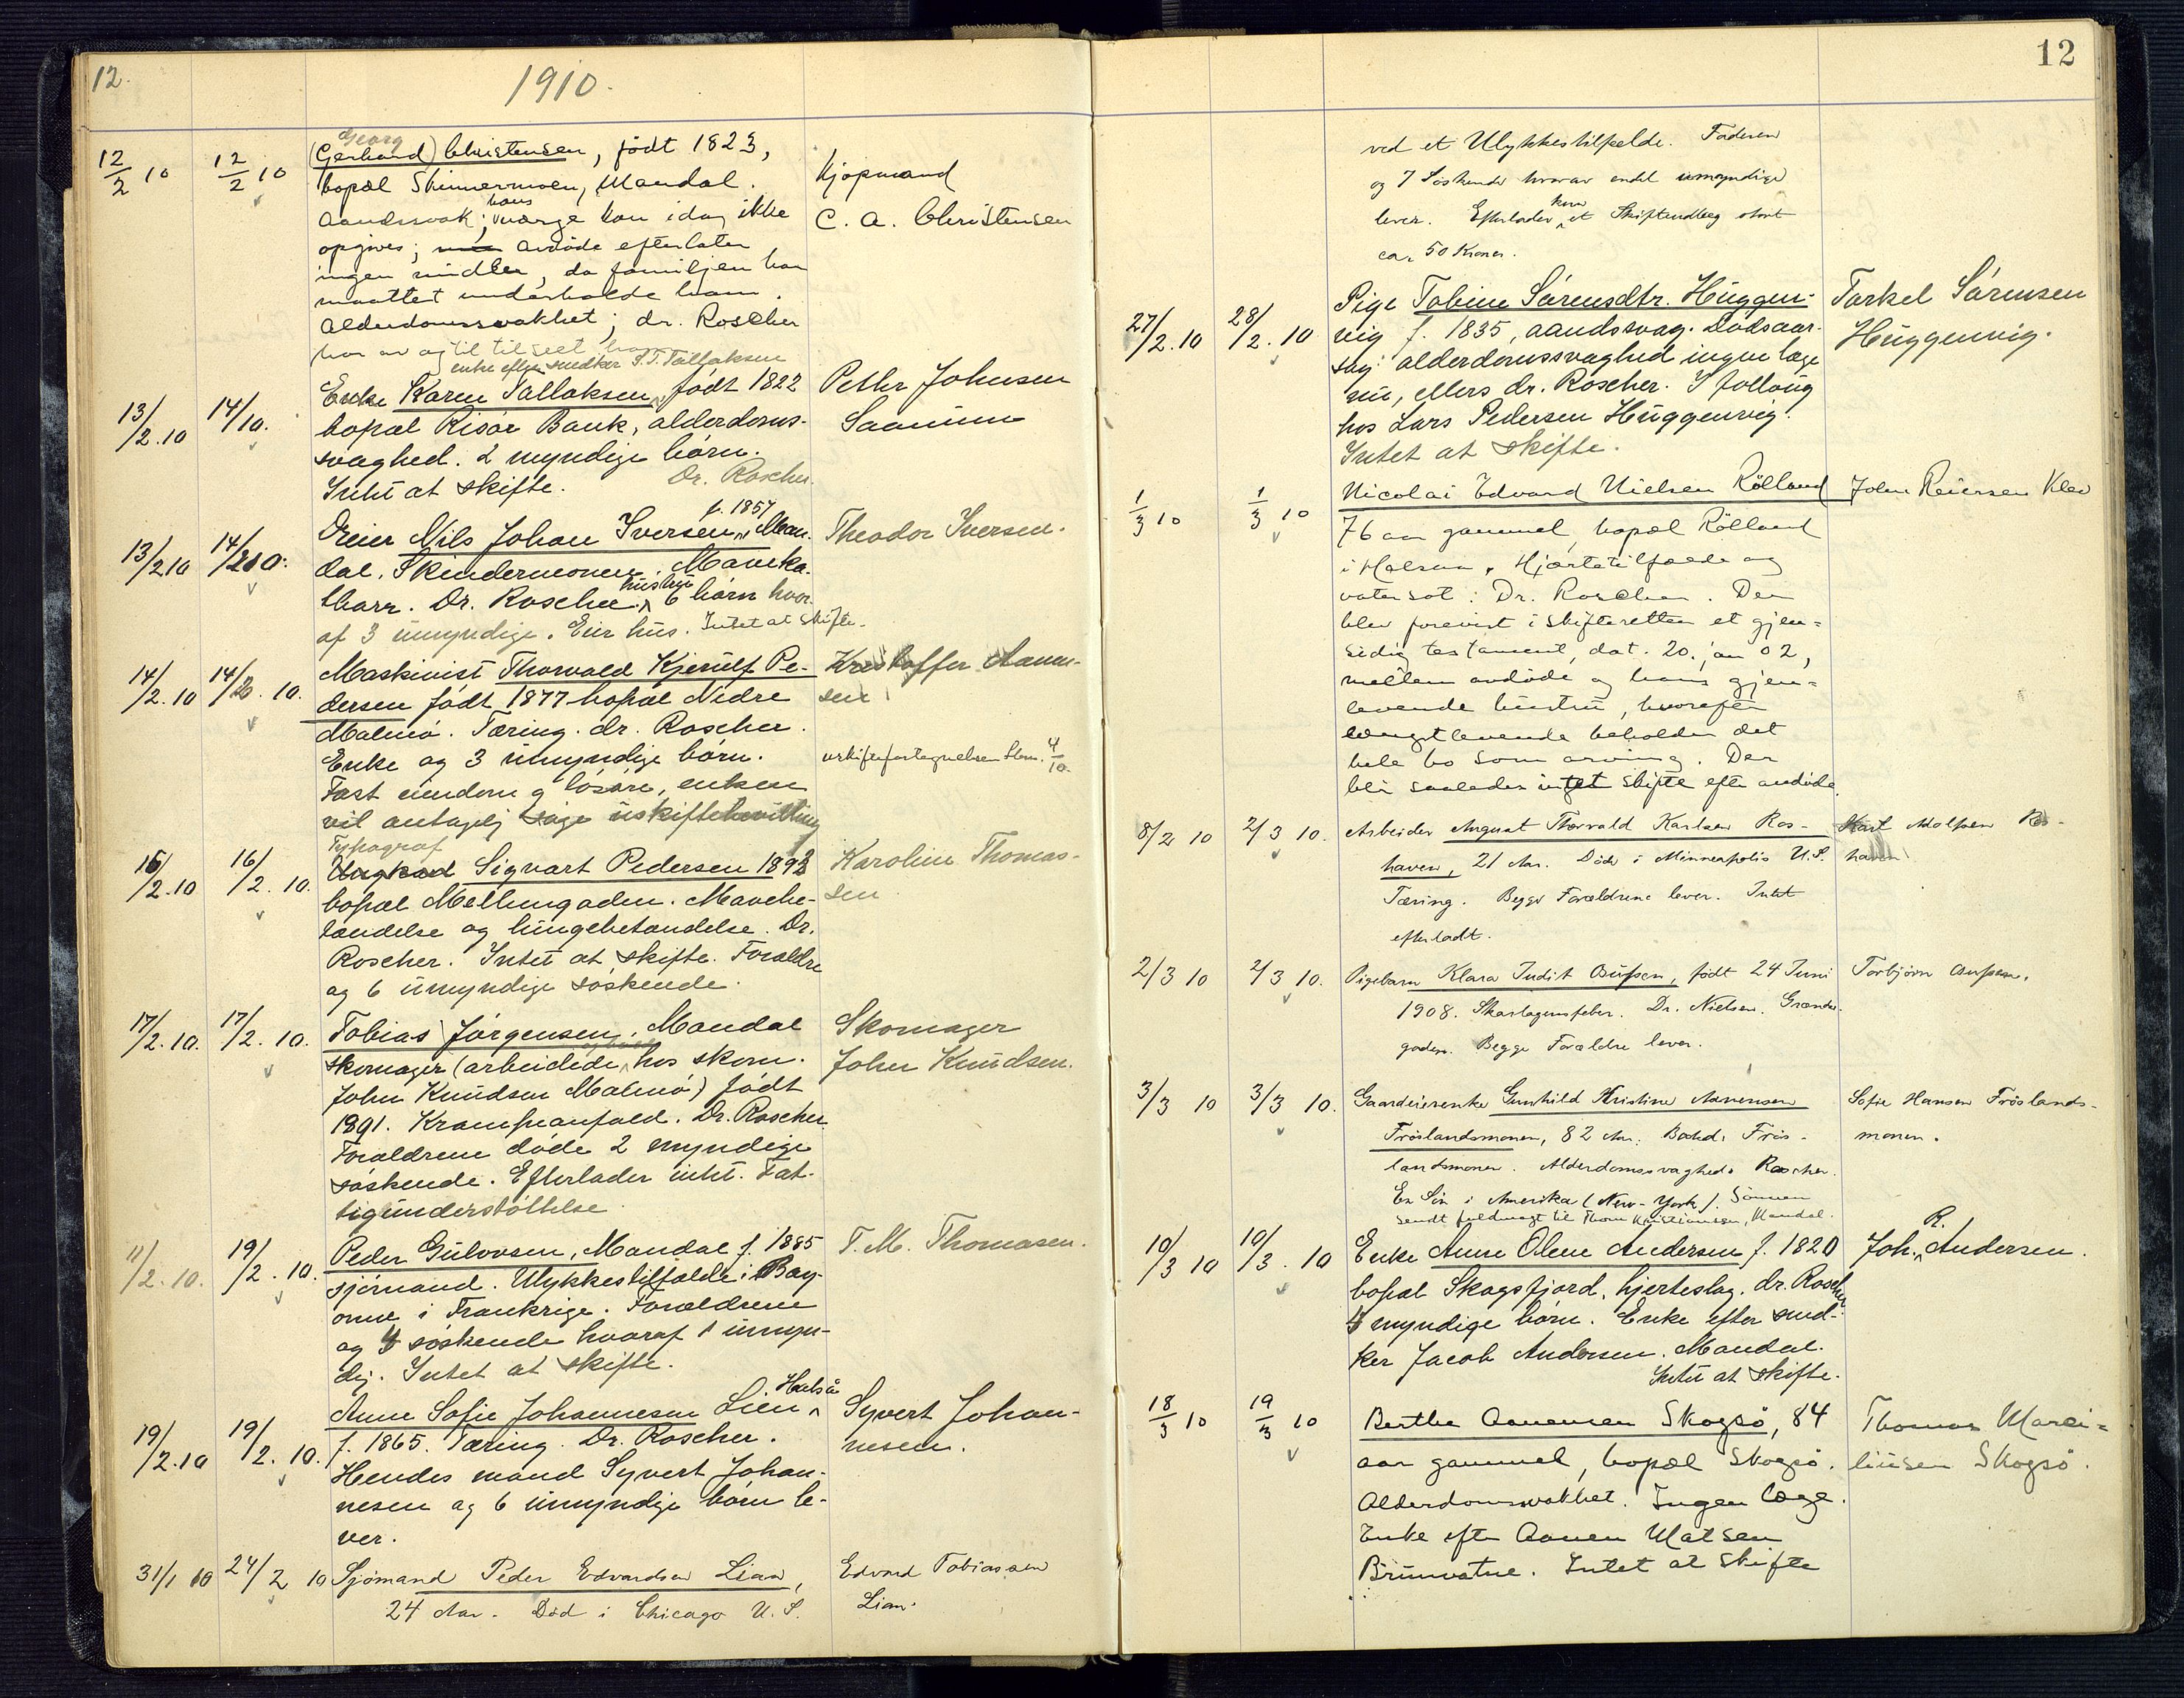 12.
1910.
12/2 10
12/2 10
Georg
(Gerhard) Christensen, født 1823,
bopæl Skinnermoen, Mandal.
hans
Aandssvak; værge kan idag ikke
opgives; avdøde efterlater
ingen midler, da familjen har
maattet underholde ham.
Alderdomssvakhet; dr. Roscher
har av og til tilseet ham
Kjøpmand
C. A. Christensen
13/2.10
14/10.
enke efter snedker S.T. Tallaksen
Enke Karen Tallaksen, født 1822
bopæl Risør Bank, alderdoms-
svaghed. 2 myndige børn.
Intet at skifte. Dr. Roscher.
Pethr Johnsen
Saanum
13/2 10
14/2 10.
f. 1857
Dreier Nils Johan Iversen, Man-
dal, Skindermonen. Maveka-
tharr. Dr. Roscher. hustru 6 børn hvor-
af 3 umyndige. Eier hus. Intet at skifte.
Theodor Iversen.
14/2.10
14/2. 10.
Maskinist Thorvald Kjerulf Pe-
dersen født 1877 bopæl Nedre
Malmø. Tæring. dr. Roscher.
Enke og 3 umyndige børn.
Fast eiendom og løsøre, enken
vil antagelig søge uskiftebevilling
Kristoffer Aanen-
sen
4/10.
16/2.10
16/2. 10.
Typograf
Ungkarl Sigvart Pedersen 1892
bopæl Mellemgaden. Mavebe-
tændelse og lungebetændelse. Dr.
Roscher. Intet at skifte. Forældre
og 6 umyndige søskende.
Karoline Thomas-
sen
17/2.10.
17/2. 10.
Tobias Jørgensen, Mandal
skomager (arbeidede hos skom.
John Knudsen Malmø) født
1891. Krampeanfald. Dr. Roscher
Forældrene døde 2 myndige
søskende. Efterlader intet. Fat-
tigunderstøttelse
Skomager
John Knudsen.
11/2. 10.
19/2. 10.
Peder Gulovsen, Mandal f. 1885
sjømand. Ulykkestilfælde i Bay-
onne i Frankrige. Forældrene
og 4 søskende hvoraf 1 umyn-
dig. Intet at skifte.
T. M. Thomasen.
19/2.10
19/2. 10.
Halsaa
Anne Sofie Johannesen Lien
f. 1865. Tæring. Dr. Roscher.
Hendes mand Syvert Johan-
nesen og 6 umyndige børn le-
ver.
Syvert Johan-
nesen.
31/1 10
24/2 10
Sjømand Peder Edvardsen Lian,
24 Aar. Død i Chicago U.S.
Edvard Tobiassen
Lian.
12
ved et Ulykkestilfælde. Faderen
og 7 Søskende hvorav endel umyndige
lever. Efterlader kun et Skiftendlæg stort
ca. 50 Kroner.
27/2.10
28/2. 10
Pige Tobine Sørensdtr. Huggen-
vig f. 1835, aandssvag. Dødsaar-
sag: alderdomssvaghed ingen læge
nu, ellers dr. Roscher. I pollæug
hos Lars Pedersen Huggenvig.
Intet at skifte.
Tarkel Sørensen
Huggenvig.
1/3 10
1/3 10
Nicolai Edvard Nielsen Rølland
76 aar gammel, bopæl Rølland
i Halsaa. Hjærtetilfælde og
vatersot: Dr. Roscher. Der
blev forevist i skifteretten et gjen-
sidig testament, dat. 20. jan 02,
mellem avdøde og hans gjen-
levende hustru, hvorefter
længstlevende beholder det
hele bo som arving. Der
bli saaledes intet skifte efter avdøde.
John Reiersen Klev
8/2 10
2/3 10.
Arbeider August Thorvald Karlsen Ros-
haven, 21 Aar. Død i Minneapolis U.S.
Tæring. Begge Forældrene lever. Intet
efterladt.
Karl Adolfsen Ros-
haven
2/3 10
2/3 10.
Pigebarn Klara Judit Osufsen, født 24 Juni
1908. Skarlagensfeber. Dr. Nielsen. Grænde-
gaden. Begge Forældre lever.
Torbjørn Osufsen.
3/3 10
3/3 10.
Gaardeierenke Gunhild Kristine Aanensen
Frøslandsmonen, 82 Aar. Bosted. Frøs-
landsmonen. Alderdomssvaghed. Roscher.
En Søn i Amerika (New-York). Sønnen
sendt fuldmagt til Thom Kristiansen, Mandal.
Sofie Hansen Frøslands-
monen.
10/3 10
10/3. 10
Enke Anne Olene Andersen f. 1820
bopæl Skogsfjord, hjerteslag. dr. Roscher
4 myndige børn. Enke efter sned-
ker Jacob Andersen. Mandal.
Intet at skifte.
R.
Joh. Andersen.
18/3 10
19/3 10
Berthe Aanensen Skogsø, 84
aar gammel, bopæl Skogsø.
Alderdomssvakhet. Ingen læge.
Enke efter Aanen Matsen
Brunvatne. Intet at skifte
Thomas Marci-
liusen Skogsø.